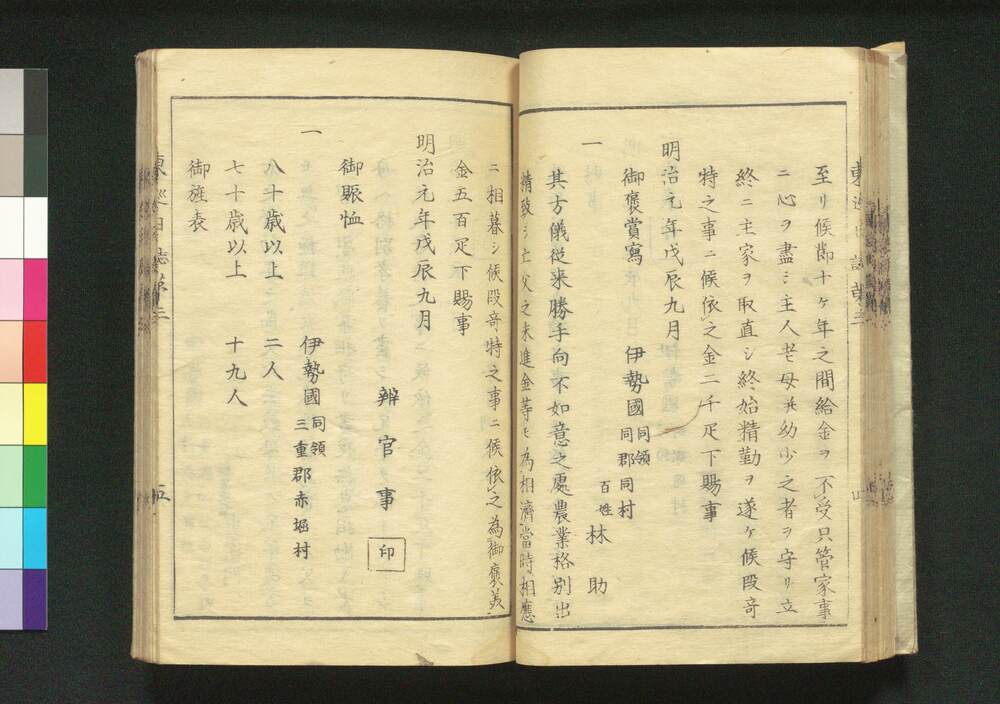 至リ候節十ケ年之間給金ヲ不受只管家事
ニ心ヲ盡シ主人老母幷幼少之者ヲ守リ立
終ニ主家ヲ取直シ終始精勤ヲ遂ケ候段奇
特之事ニ候依之金二千疋下賜事
明治元年戊辰九月
御褒賞寫 伊勢國同領同郡同村
一 百姓 林助
其方儀従来勝手向不如意之處農業格別出
精致シ亡父之未進金等モ為相濟當時相應
ニ相暮シ候段奇特之事ニ候依之為御褒美
金五百疋下賜事
明治元年戊辰九月
辨官事 印
御賑恤
一 伊勢國同領三重郡赤堀村
八十歳以上 二人
七十歳以上 十九人
御旌表
東巡日誌第三 五